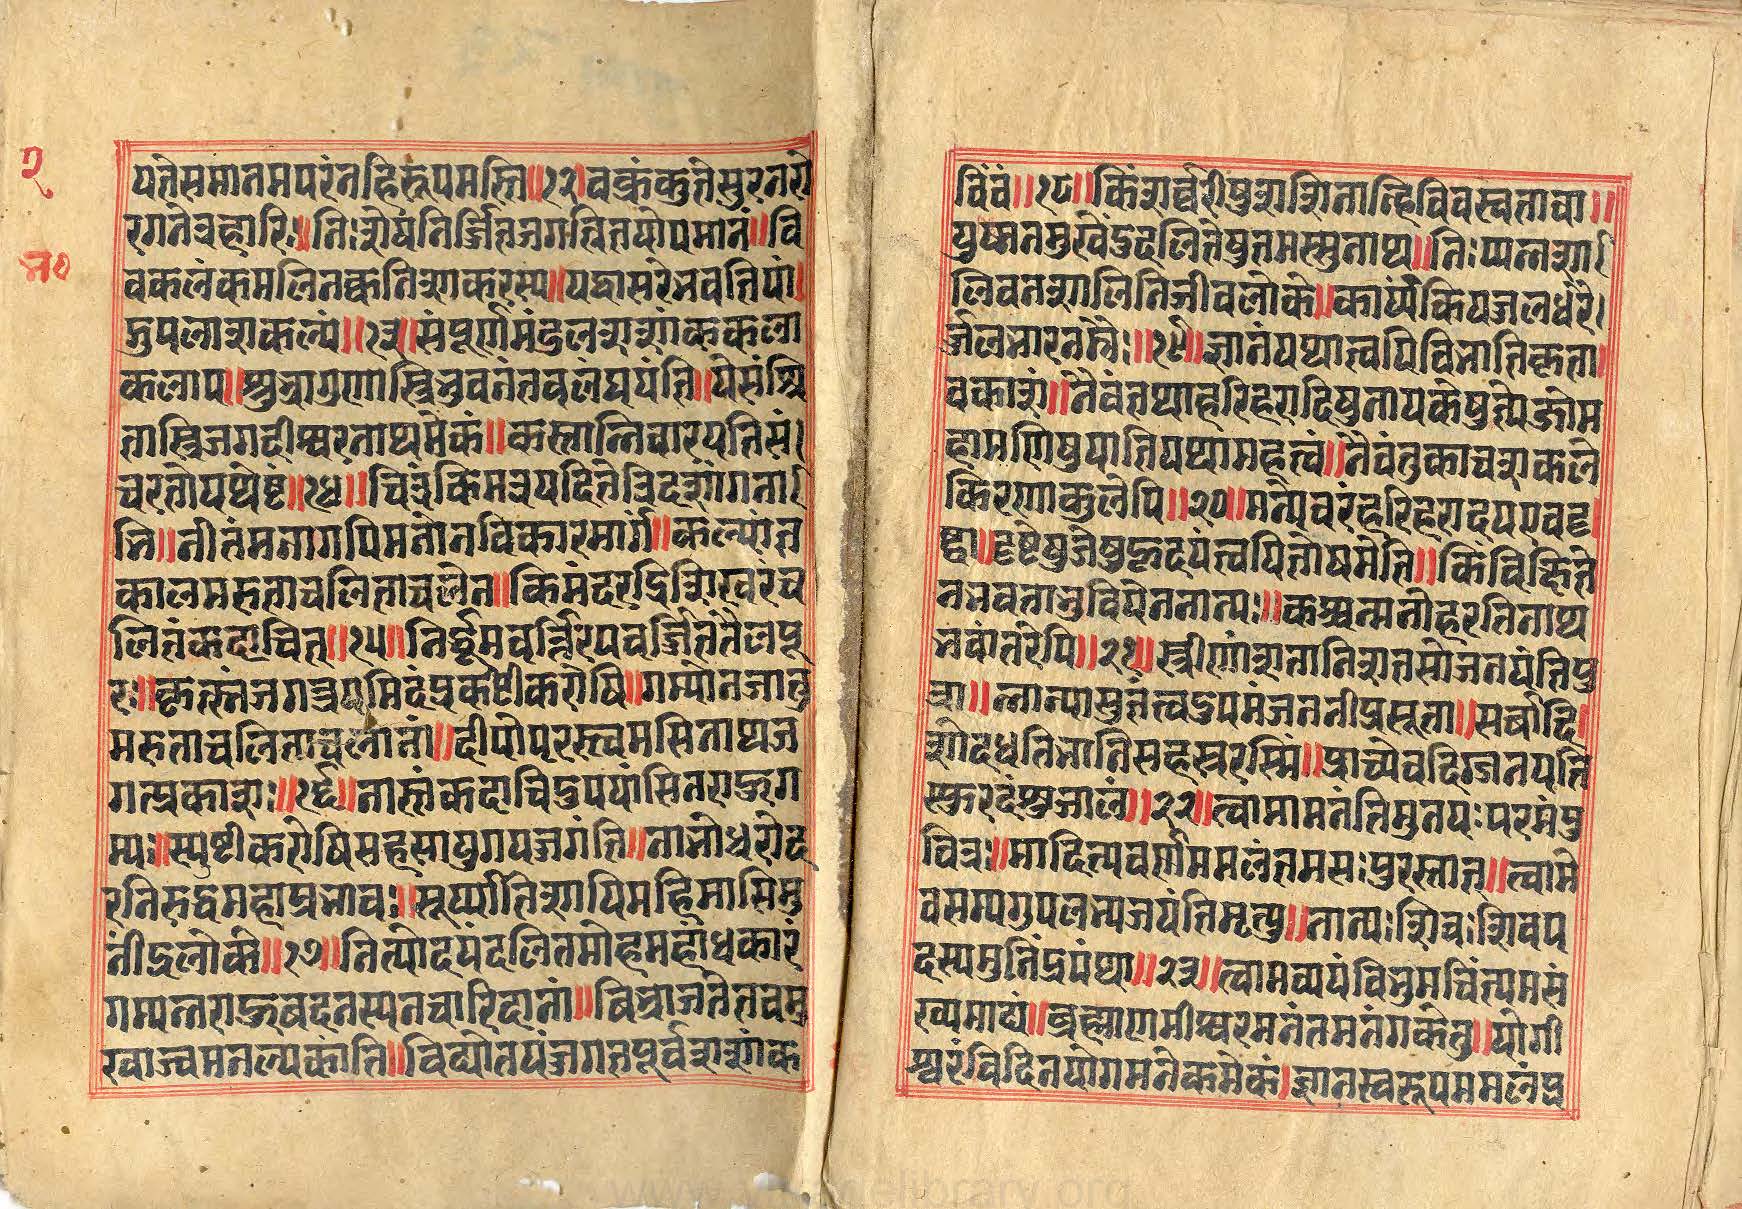 २
न०
यत्तेसमानमपरंनहिरूपमस्ति॥१२॥वक्रंक्कतेसुरनरो
रगनेत्रहारि॥निःशेषंनिर्जितजगत्रितयोपमानं॥विं
वकलंकमलिनक्कनिशाकरस्य॥यद्वासरेभवतिपां
डुपलाशकल्पं॥१३॥संपूर्णमंडलशशांककला
कलाप॥शुभ्रागुणास्त्रिभुवनंतवलंघयंति॥येसंश्रि
तास्त्रिजगदीश्वरनाथमेकं॥कस्तान्निवारयतिसं।
चरतोयथेष्टं॥१४॥चित्रंकिमत्रयदितेत्रिदशांगना।
भि॥नीतंमनागपिमनोनविकारमार्गं॥कल्पांत
कालमरुताचलिताचलेन॥किमंदराद्रिशिखरंच
लितंकदाचित॥१५॥निर्द्धूमवर्त्तिरपवर्ज्जिततैलपू
रः॥कृत्स्नंजगत्रयमिदंप्रकटीकरोषि॥गम्योनजातु
मरुताचलिताचलानां॥दीपोपरस्त्वमसिनाथज
गत्प्रकाशः॥१६॥नास्तंकदाचिदुपयांसिनराहुग
म्यः॥स्पष्टीकरोषिसहसायुगपजगंति॥नांभोधरोद
रनिरुद्धमहाप्रभावः॥सूर्य्यातिशायिमहिमासिमु
नींद्रलोके॥१७॥नित्योदयंदलितमोहमहांधकारं
गम्यंनराहुवदनस्यनवारिदानां॥विभ्राजतेतवमु
खाज्वमनल्पकांति॥विद्योतयंजगतपूर्वशशांक
विंवं॥१८॥किंशर्व्वरीषुशशिनान्हिविवस्वतावा॥
युष्मनमुखेंदुदलितेषुतमस्सुनाथ॥निःप्पन्नशा।
लिवनशालिनिजीवलोके॥कार्य्यंकियजलधरे।
र्जलभारनम्रैः॥१९॥ज्ञानंयथात्वयिविभातिकृता।
वकाशं॥नैवंतथाहरिहरादिषुनायकेषुतेजोम
हामणिषुयातियथामहत्वं॥नैवंतुकाचशकले
किरणाकुलेपि॥२०॥मन्येवरंहरिहरादयएवदृ।
ष्टा॥दृष्टेषुजेषुहृदयंत्वयितोषमेति॥किंविक्षिते
नभवताभुवियेननान्यः॥कश्चन्मनोहरतिनाथ
भवांतरेपि॥२१॥स्त्रीणांशतानिशतसोजनयंतिपु
त्रा॥न्नान्यासुतंत्वदुपमंजननीप्रसूता॥सर्वादि
शोदधतिभानिसहस्वरस्मिं॥प्राच्येवदिग्जनयति
स्फुरदंशुजालं॥२२॥त्वामामनंतिमुनयःपरमंपु
वित्रः॥मादित्यवर्णममलंतमसःपुरस्तात्॥त्वामे
वसम्यगुपलभ्यजयंतिमृत्यु॥नान्यःशिवःशिवप
दस्यमुनिंद्रपंथा॥२३॥त्वामव्ययंविभुमचिंत्यमसं
ख्यमाद्यं॥ब्रह्माणमीश्वरमनंतमनंगकेतु॥योगी
श्वरंविदितयोगमनेकमेकं।ज्ञानस्वरूपममलंप्र